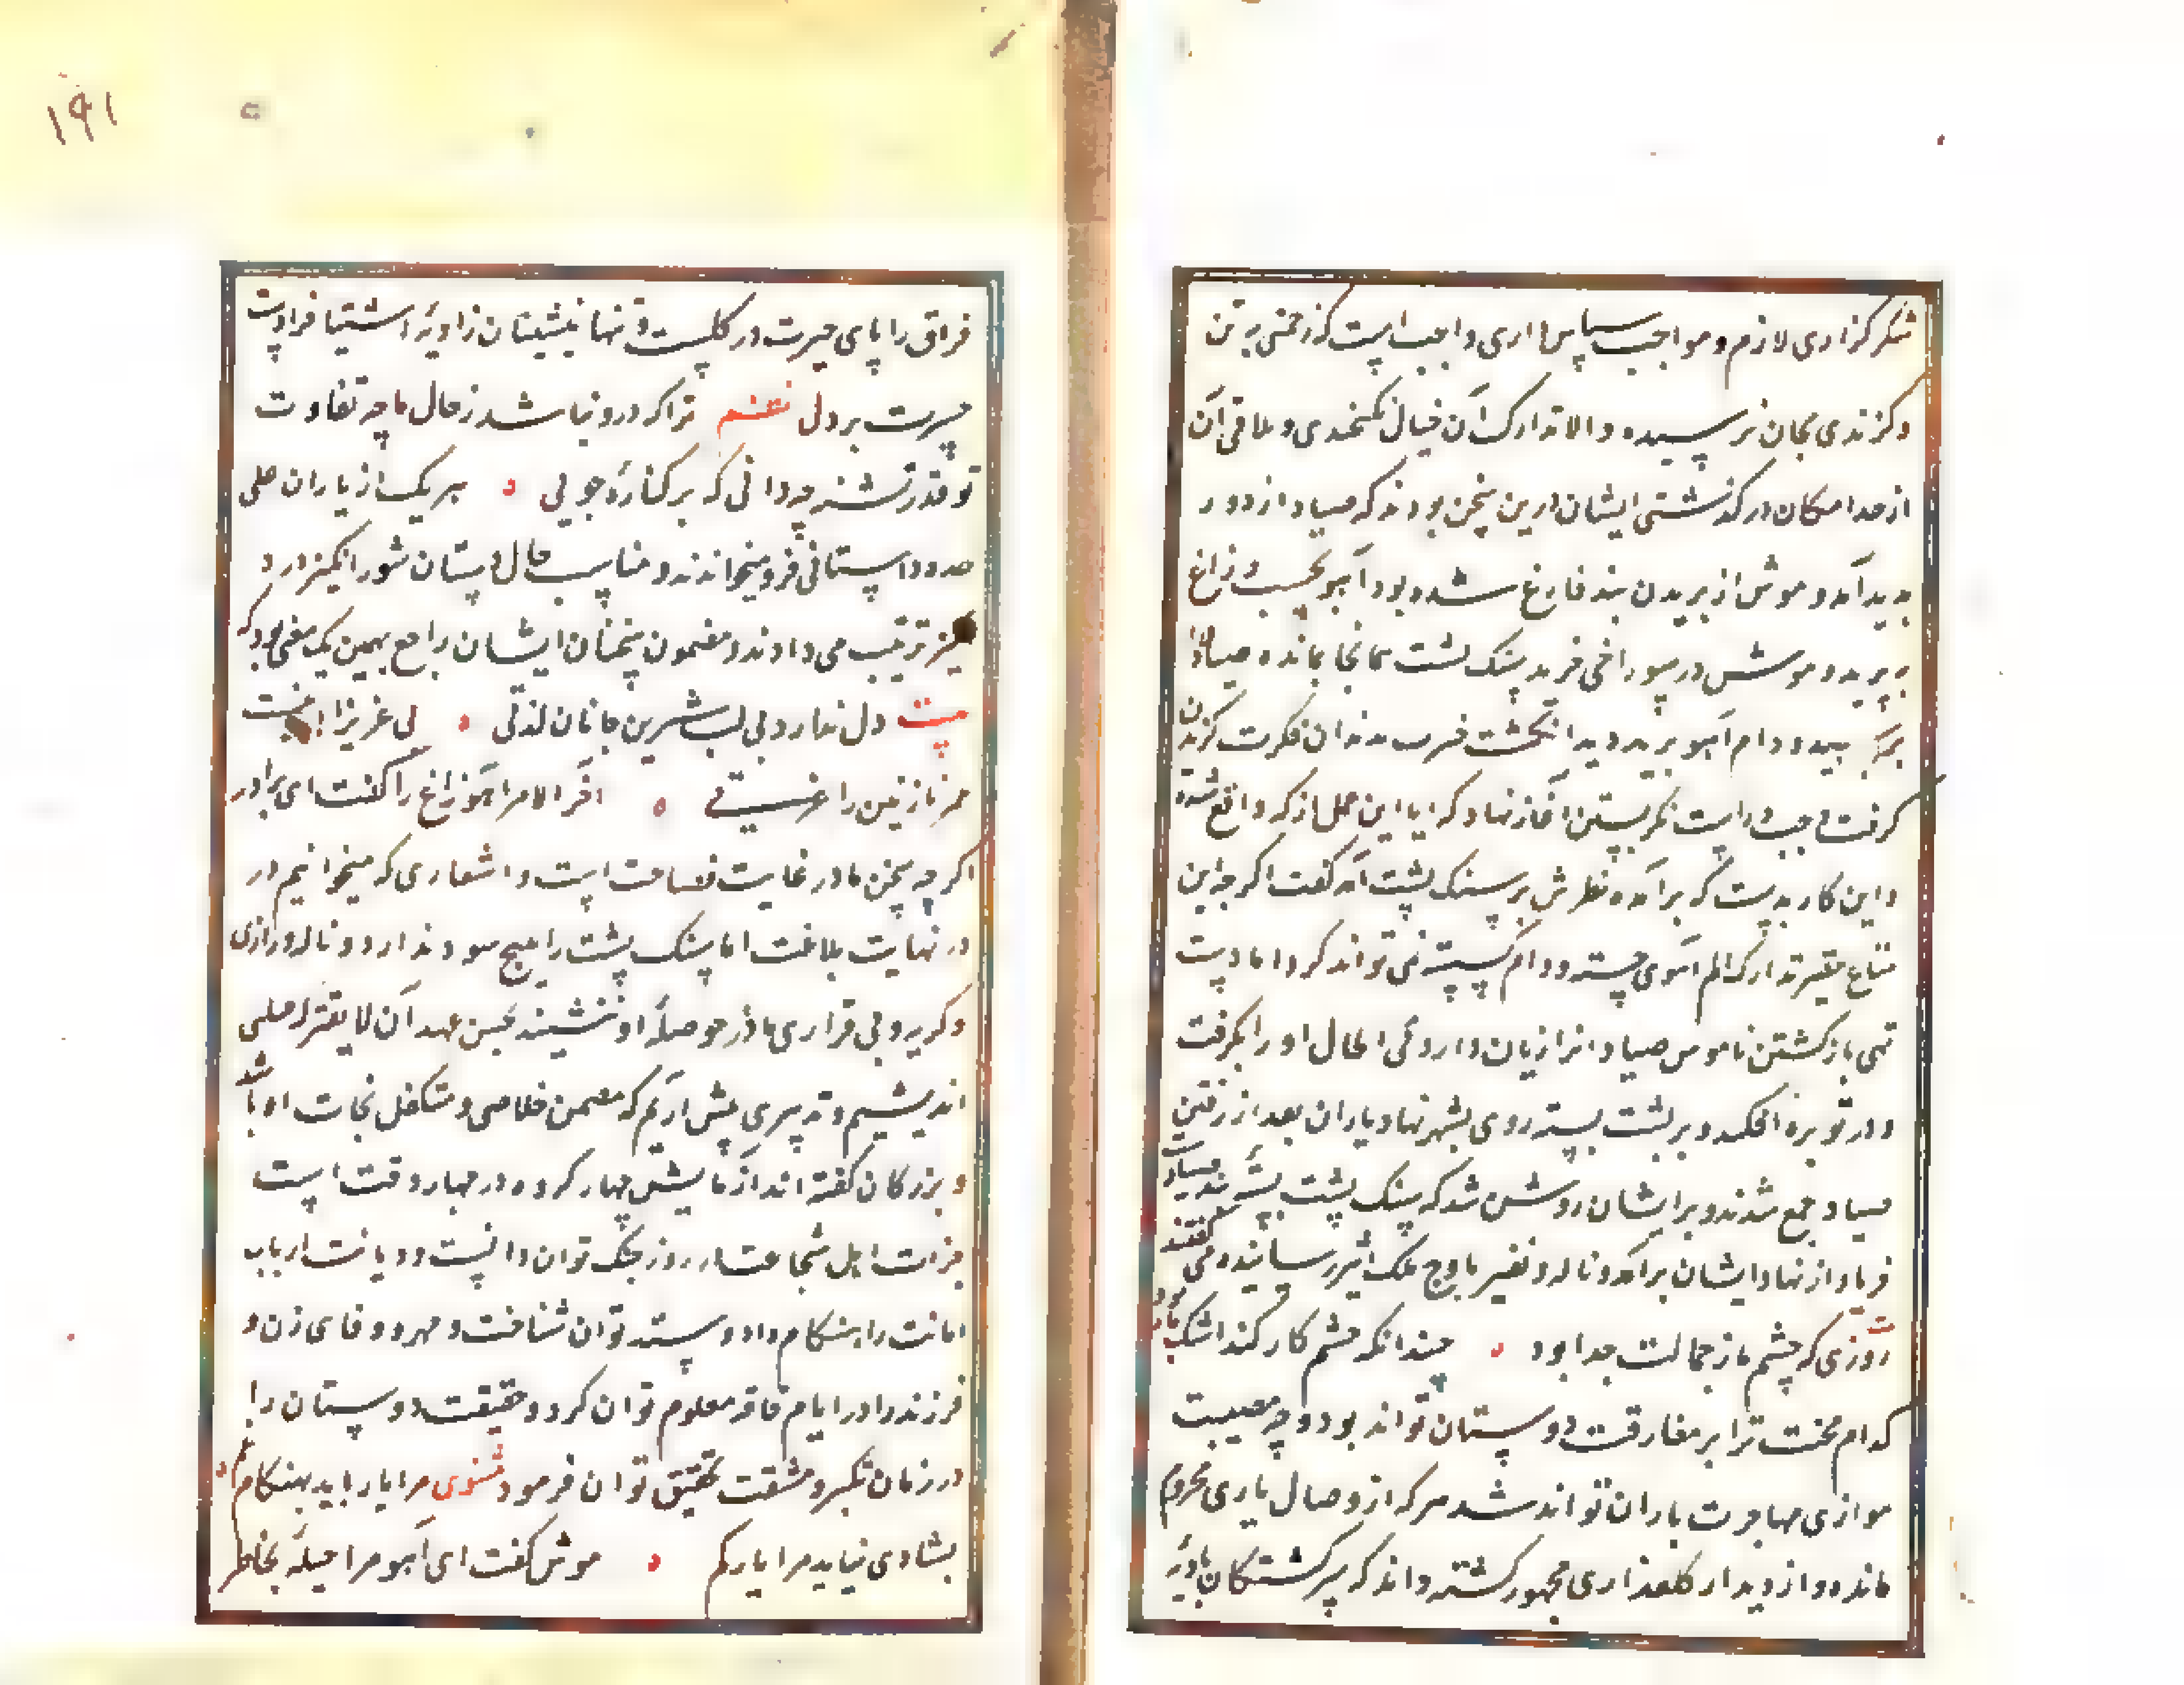 شکر کزاری لازم و مواجب سپاس داری واجب است که زخمی به تن
و کزندی بجان نرسیده و الا تدارک آن خیال نکنجیدی و تلافی آن
از حد امکان درکذشتی ایشان درین سخن بودند که صیاد از دور
پدید آمد و موش از بریدن بند فارغ شده بود آهو بجست و زاغ
بپرید و موش در سوراخی خزید سنک پشت همانجا بمانده صیاد
برسید و دام آهو بریده دید انکشت حیرت بدندان فکرت کزیدن
کرفت و چپ و راست نکریستن آغاز نهاد که آیا این عمل از که واقع شده
و این کار بدست که برآمده نظرش بر سنک پشت آمد کفت اکر چه این
متاع حقیر تدارک الم آهوی جسته و دام کسسته نمی تواند کرد اما دست
تهی بازکشتن ناموس صیاد را زیان دارد فی الحال او را بکرفت
و در توبره افکند و بر پشت بسته روی بشهر نهاد یاران بعد از رفتن
صیاد جمع شدند و بر ایشان روشن شد که سنک پشت بسته بند صیاد
فریاد از نهاد ایشان برآمد و ناله و نفیر باوج فلک اثیر رسانیده می کفتند
روزی که چشم ما ز جمالت جدا بود چندانکه چشم کار کند اشک ما بود
کدام محنت ترا بر مفارقت دوستان تواند بود و چه مصیبت
موازی مهاجرت یاران تواند شد هر که از وصال یاری محروم
مانده و از دیدار کلعذاری مهجور کشته داند که سرکشتکان بادیه
۱۹۱
فراق را پای حیرت در کلست و تنها نشینان زاویه اشتیاق را دست
حسرت بر دل نظم ترا که درد نباشد ز حال ما چه تفاوت
تو قدر تشنه چه دانی که بر کناره جویی هر یک از یاران علی
حده داستانی فرو میخواندند و مناسب حال داستان شورانکیز درد
ترتیب می دادند و مضمون سخنان ایشان راجع بهمین یک معنی بود که
بیت دل ندارد بی لب شیرین جانان لذتی بی عزیزان نیست
عمر نازنین را عزتی آخر الامر آهو زاغ را کفت ای برادر
اکر چه سخن ما در غایت فصاحت است و اشعاری که میخوانیم در
در نهایت بلاغت اما سنک پشت را هیچ سود ندارد و ناله و زاری
و کریه و بی قراری ما در حوصله او ننشیند بحسن عهد آن لایقتر که حیلی
اندیشیم و تدبیری پیش آریم که متضمن خلاصی و متکفل نجات او باشد
و بزرکان کفته اند آزمایش چهار کروه در چهار وقت است
جرات اهل شجاعت در روز جنک توان دانست و دیانت ارباب
امانت را بهنکام داد و ستد توان شناخت و مهر و وفای زن و
فرزند را در ایام فاقه معلوم توان کرد و حقیقت دوستان را
در زمان نکبت و مشقت تحقیق توان فرمود مثنوی مرا یار باید بهنکام غم
بشادی نیاید مرا یار کم موش کفت ای آهو مرا حیله بخاطر